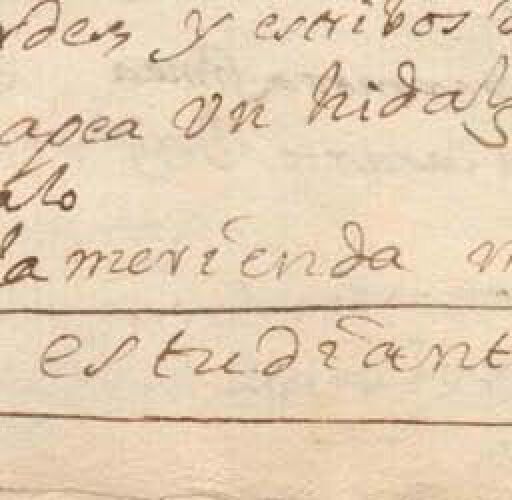 rdes y estribos d
apea vn hidalg
alo
la merienda m
estudiant